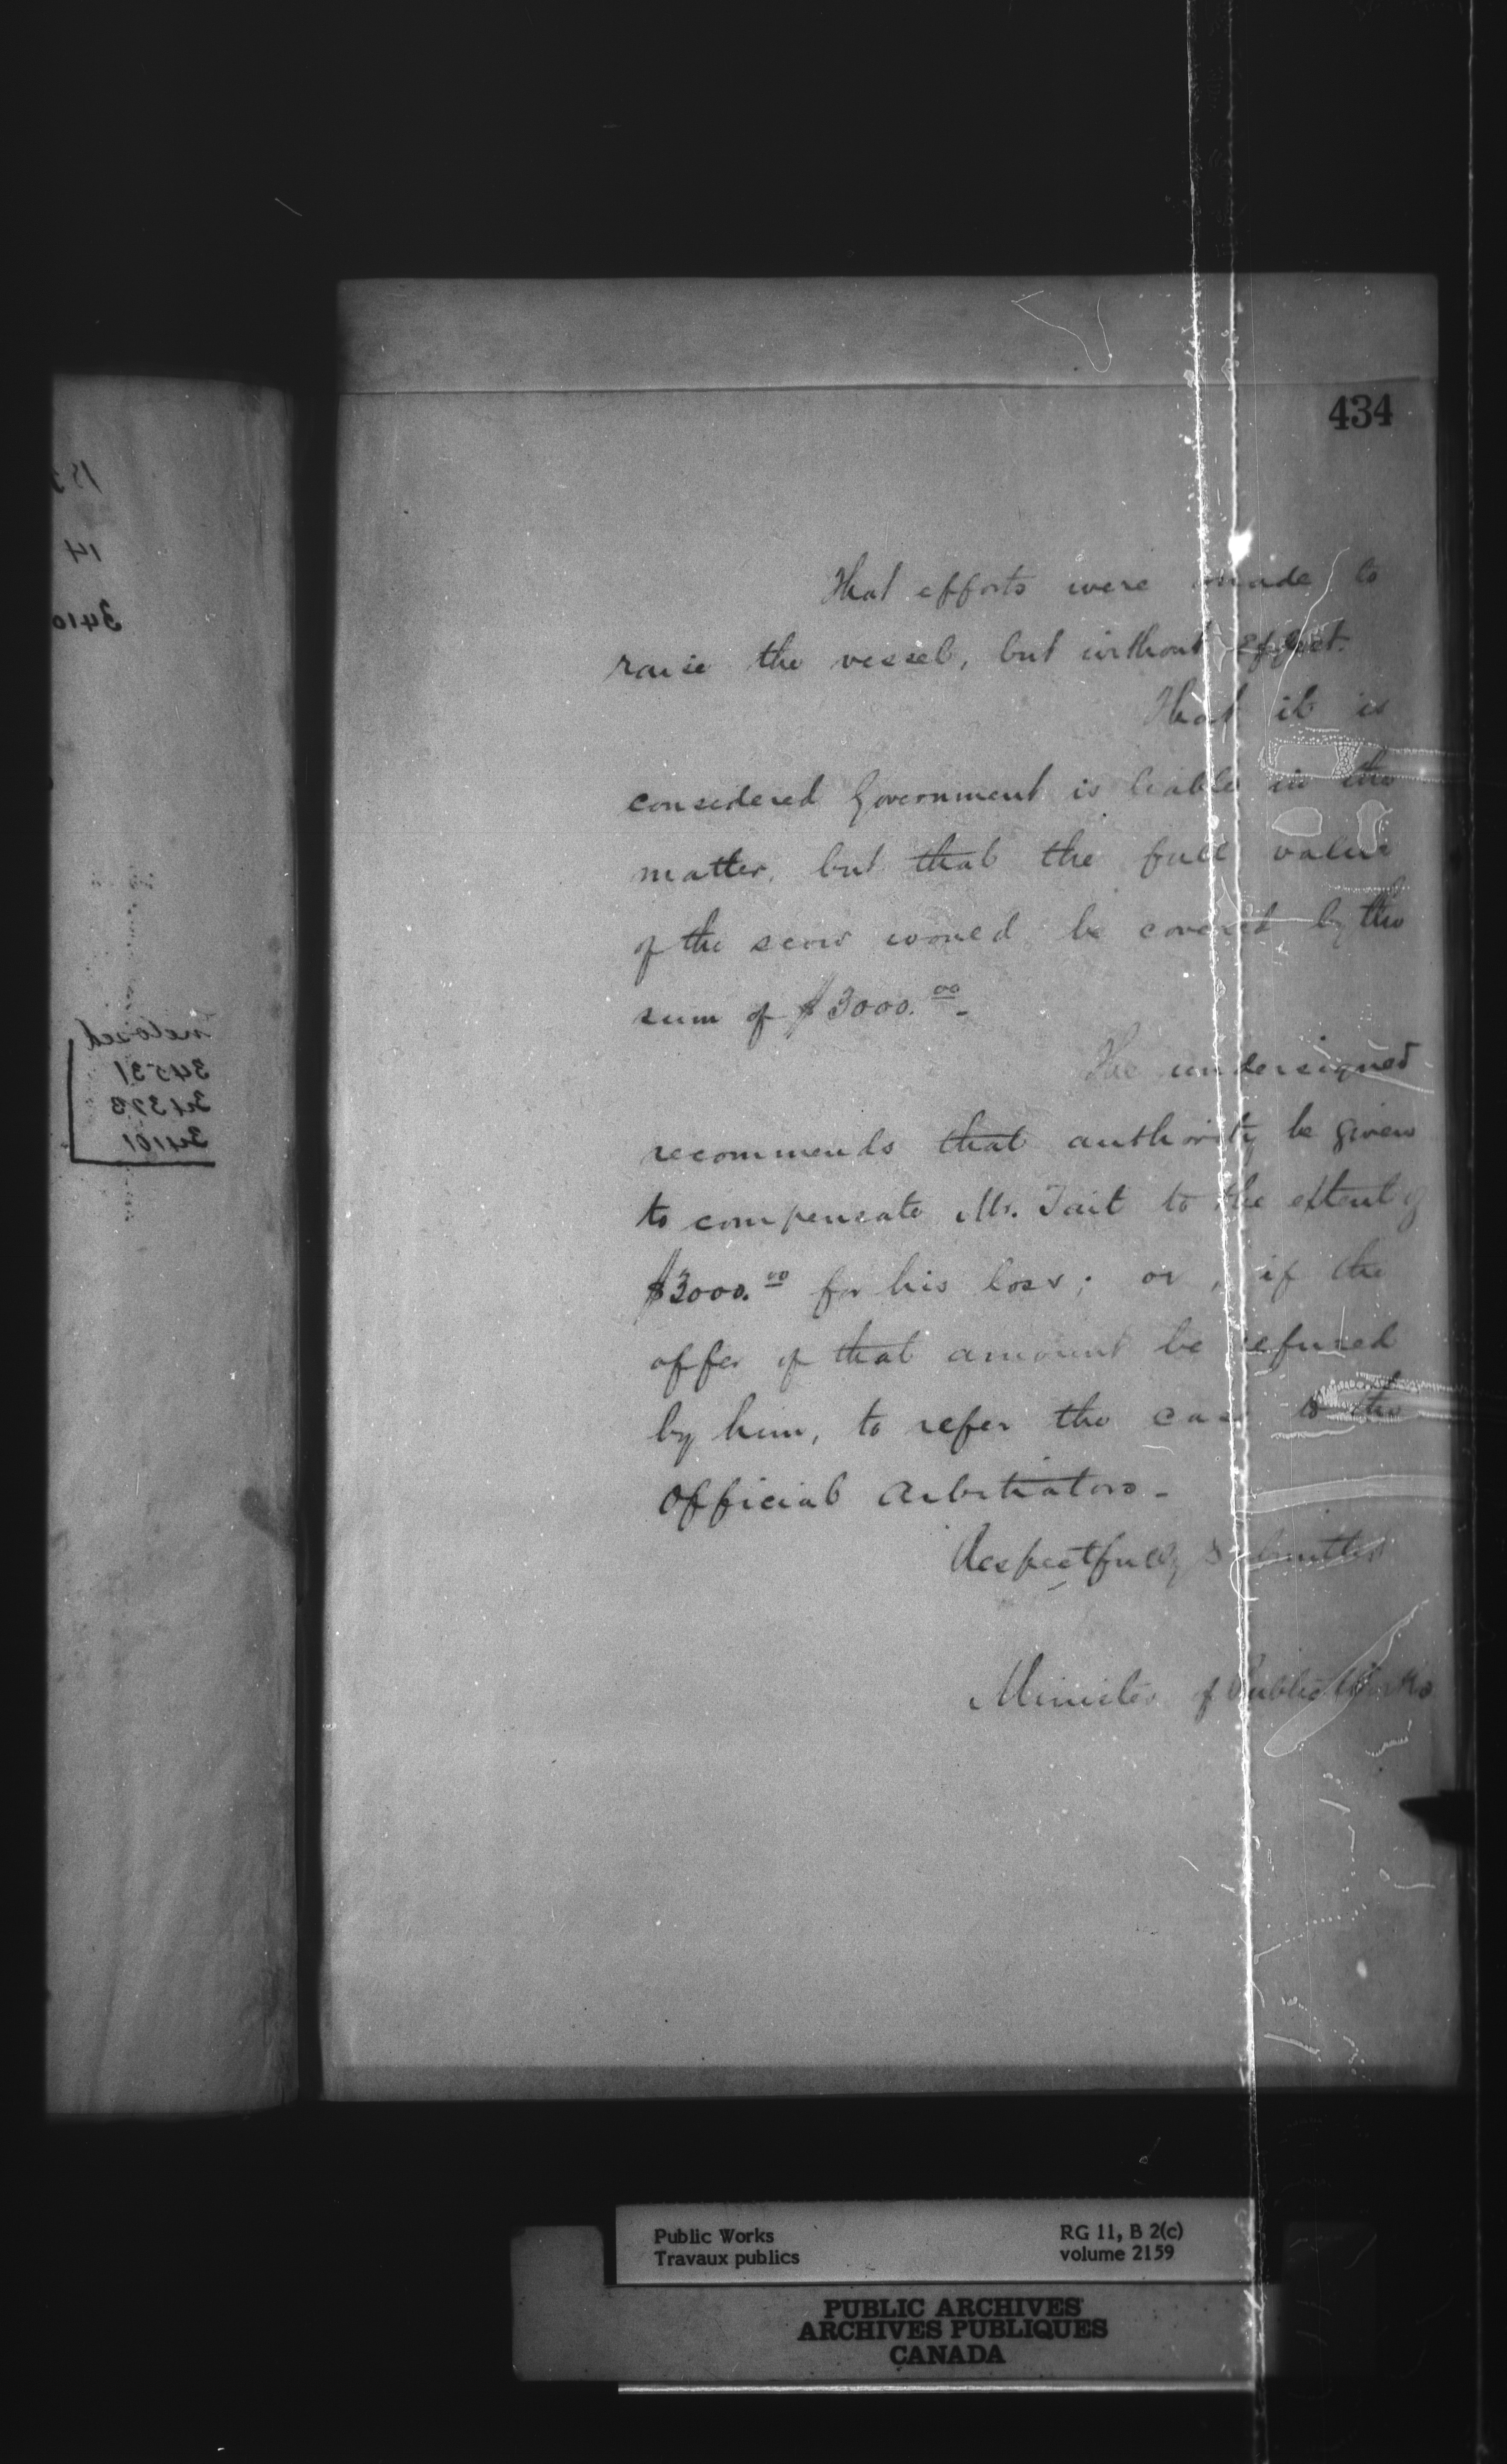 434
That efforts were made to
raise the vessel, but without effect.
That it is
considered Government is liable in the
matter, but that the full value
of the scow would be covered by the
sum of $3000.00 -
The undersigned
recommends that authority be given
to compensate Mr. Tait to the extent of
$3000.00 for his loss; or, if the
offer of that amount be refused
by him, to refer the case to the
Official Arbitrators -
Respectfully Submitted
Minister of Public Works
14
3410
34531
34101
Public Works
Travaux publics
RG 11, B 2(c)
volume 2159
PUBLIC ARCHIVES
ARCHIVES PUBLIQUES
CANADA